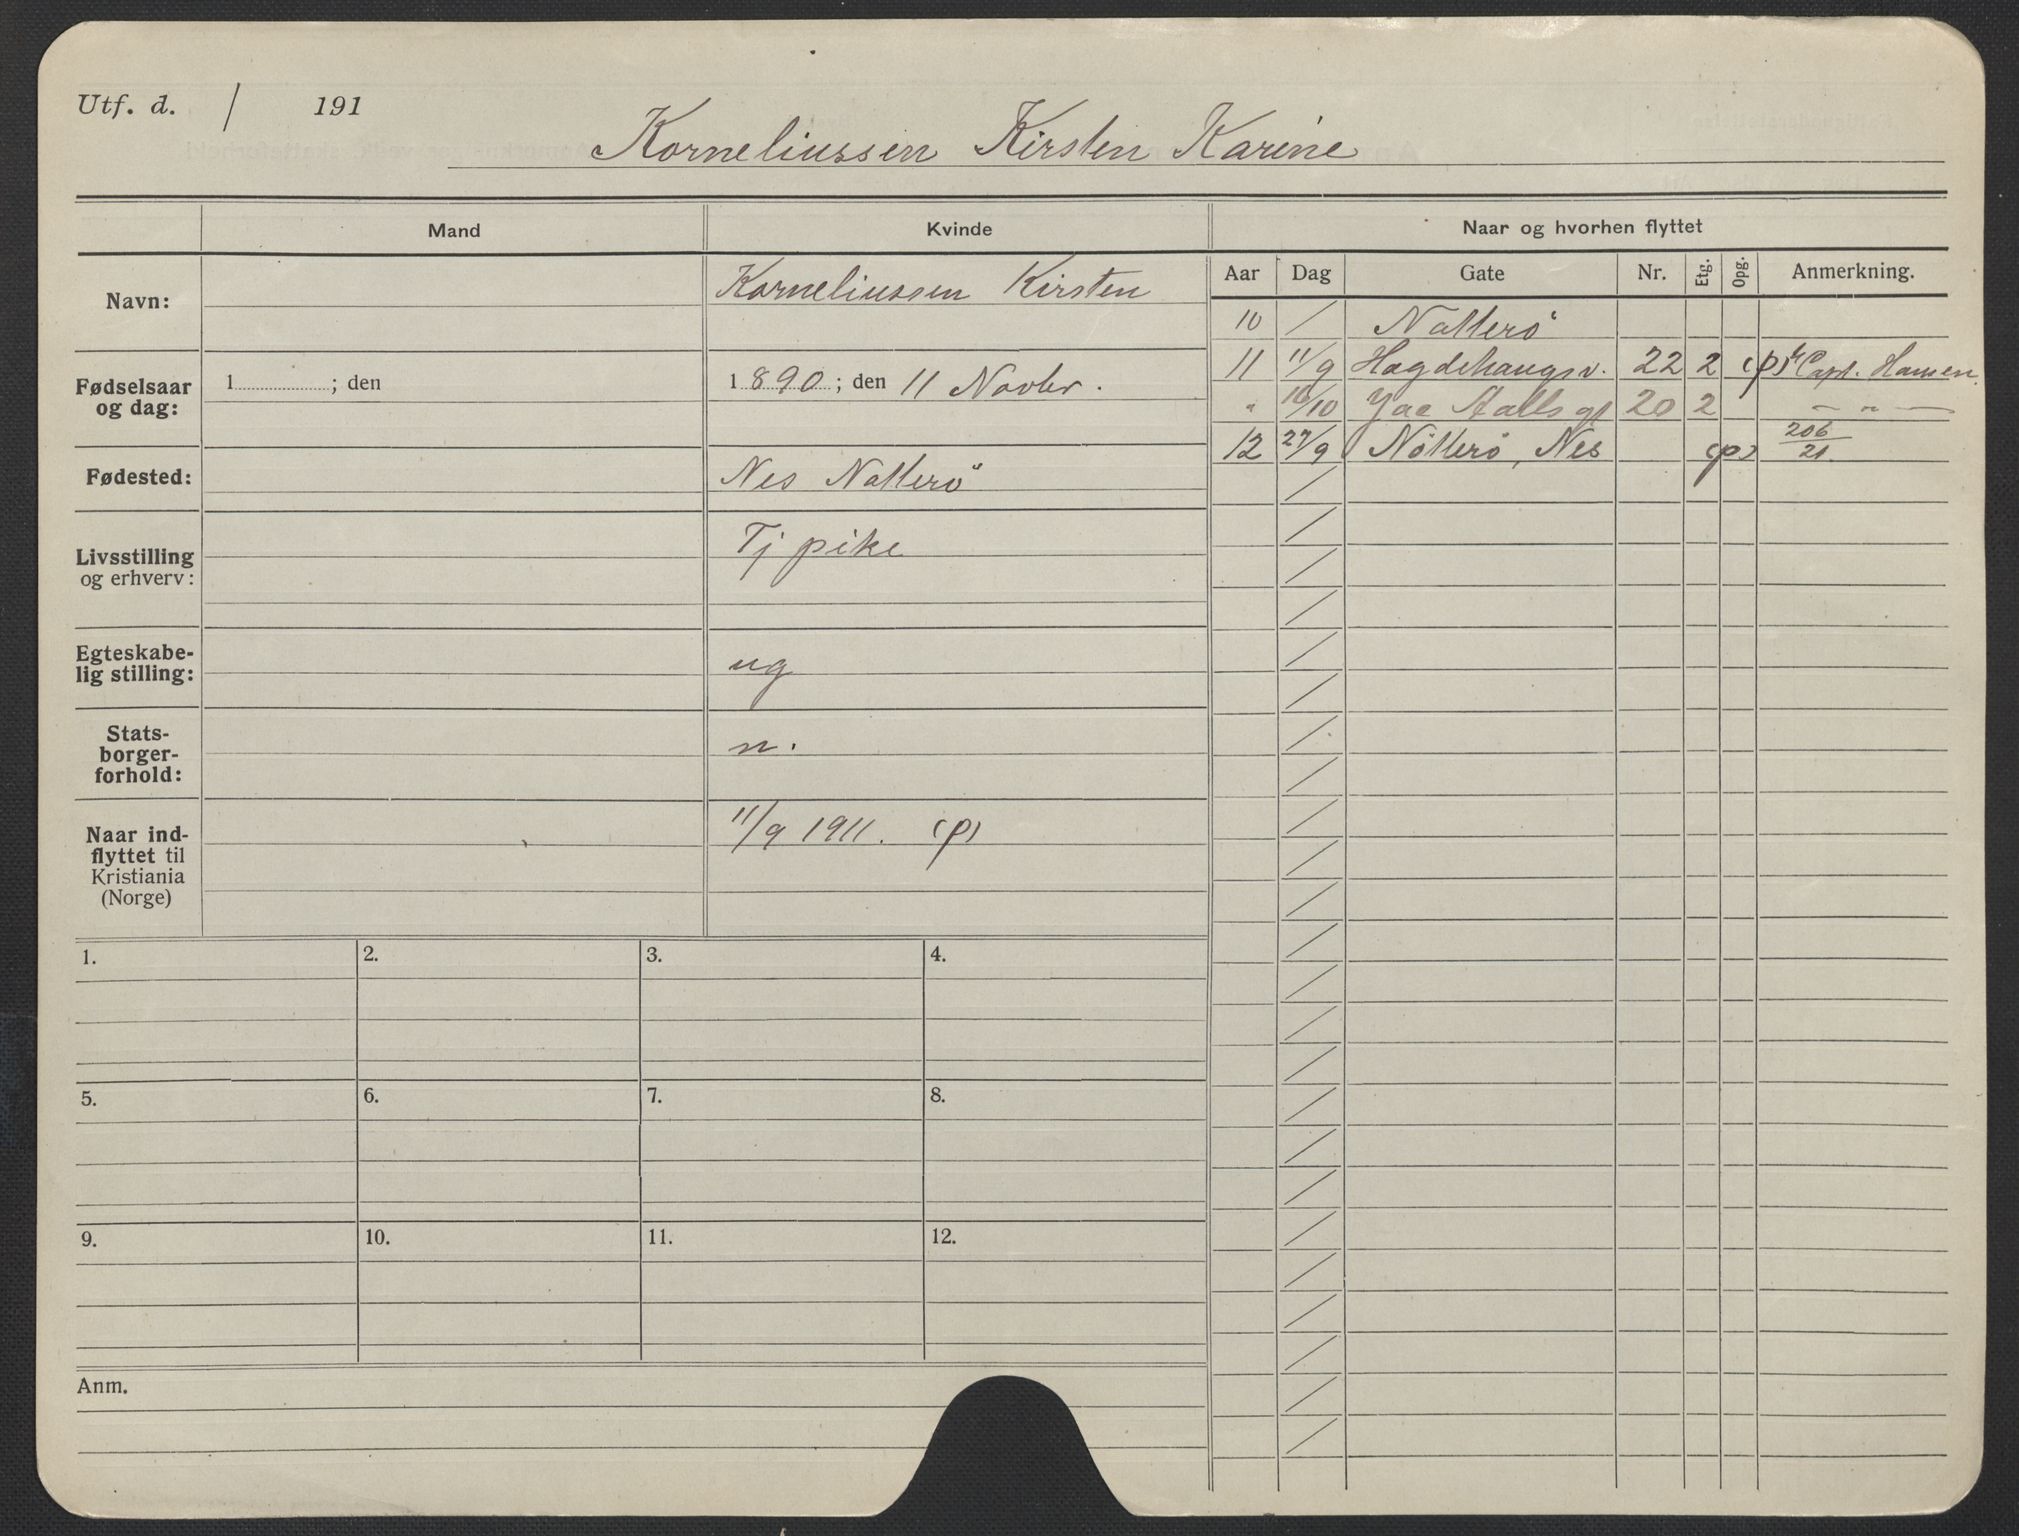 Utf. d. / 191
Korneliussen Kirsten Karine
Mand
Kvinde
Naar og hvorhen flyttet
Navn:
Korneliussen Kirsten
Fødselsaar og dag:
1 ; den
1890 ; den 11 Novbr.
Fødested:
Nes Nøtterö
Livsstilling og erhverv:
Tj pike
Egteskabe-
lig stilling:
ug
Stats-
borger-
forhold:
n.
Naar ind-
flyttet til
Kristiania
(Norge)
11/9 1911. (p)
Aar Dag Gate Nr. Etg. Opg. Anmerkning.
10 / Nøtterö
11 11/9 Hagdehaugsv. 22 2 (p) Capt. Hansen
" 10/10 Jac Aalls gt 20 2 — " —
12 27/9 Nötterö, Nes (p) 206/21.
1. 2. 3. 4.
5. 6. 7. 8.
9. 10. 11. 12.
Anm.